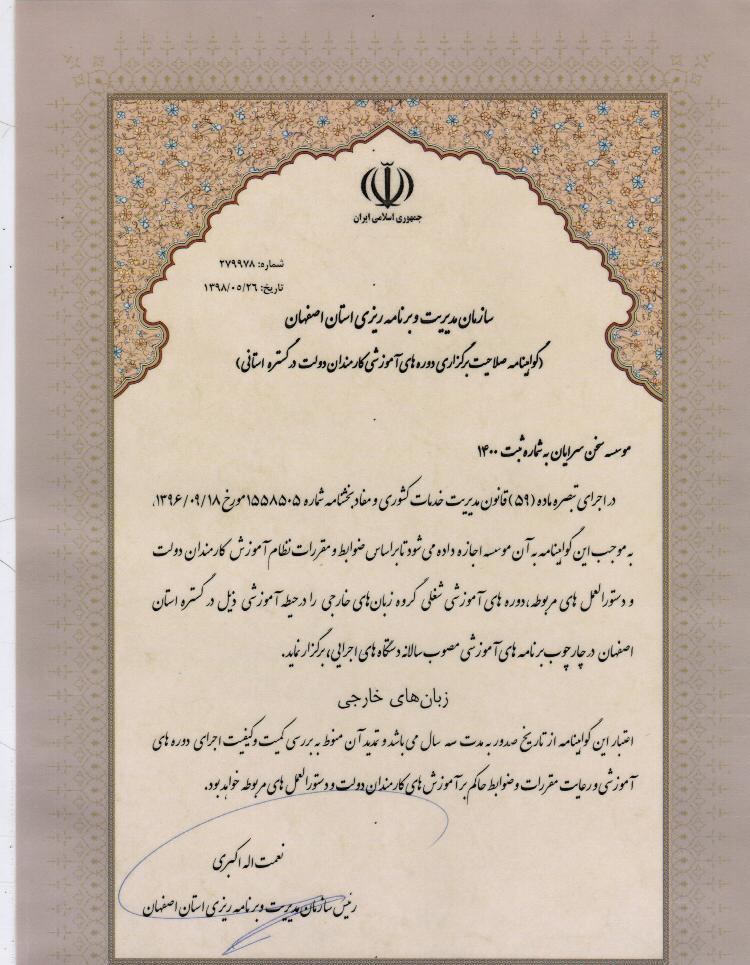 جمهوری اسلامی ایران
شماره: ۲۷۹۹۷۸
تاریخ: ۱۳۹۸/۰۵/۲۶
سازمان مدیریت و برنامه ریزی استان اصفهان
(گواهینامه صلاحیت برگزاری دوره های آموزشی کارمندان دولت در گستره استانی)
موسسه سخن سرایان به شماره ثبت ۱۴۰۰
در اجرای تبصره ماده (۵۹) قانون مدیریت خدمات کشوری و مفاد بخشنامه شماره ۱۵۵۸۵۰۵ مورخ ۱۳۹۶/۰۹/۱۸،
به موجب این گواهینامه به آن موسسه اجازه داده می شود تا بر اساس ضوابط و مقررات نظام آموزش کارمندان دولت
و دستورالعمل های مربوطه، دوره های آموزشی شغلی گروه زبان های خارجی را در حیطه آموزشی ذیل در گستره استان
اصفهان در چارچوب برنامه های آموزشی مصوب سالانه دستگاه های اجرایی، برگزار نماید.
زبان‌های خارجی
اعتبار این گواهینامه از تاریخ صدور به مدت سه سال می باشد و تمدید آن منوط به بررسی کمیت و کیفیت اجرای دوره های
آموزشی و رعایت مقررات و ضوابط حاکم بر آموزش های کارمندان دولت و دستورالعمل های مربوطه خواهد بود.
نعمت اله اکبری
رئیس سازمان مدیریت و برنامه ریزی استان اصفهان